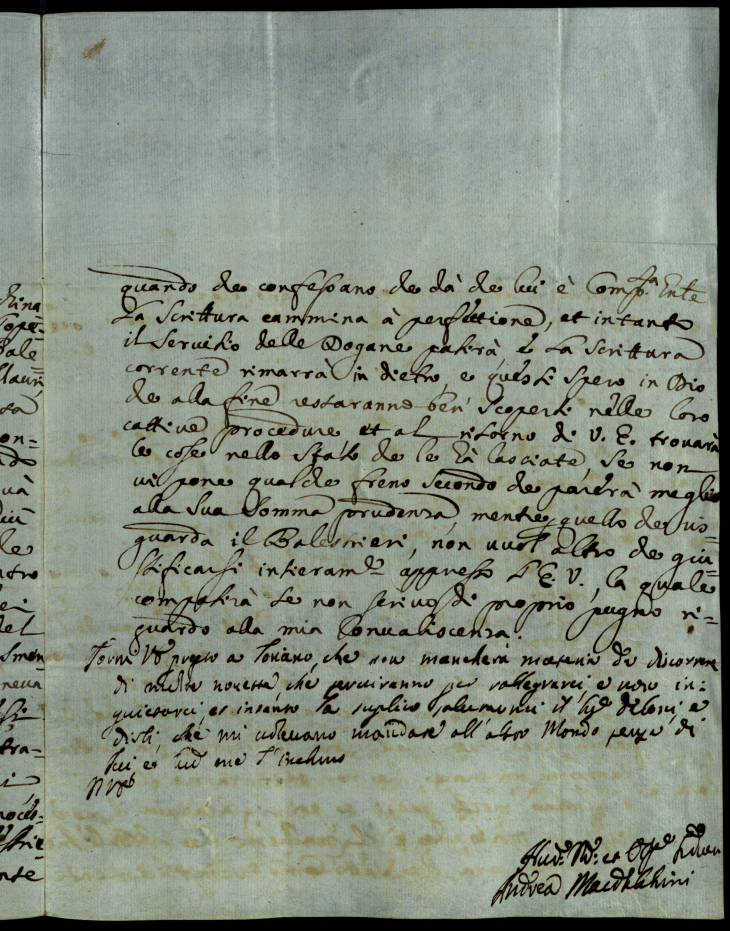 china
Sope=
Bale
lauri
sta
on=
do
uà
più
le
ntro
ei
del
Smen
neua
si
tra=
i
noces=
strie
nte
quando che confessano che dà de lui è Comp.ta Ente
La Scrittura cammina à perfettione, et intanto
il Servitio delle Dogane patirà, è La Scrittura
corrente rimarrà in dietro, e questi spero in Dio
che alla fine restaranno ben scoperti nelle loro
cattive procedure et al ritorno di V. E. trouarà
le cose nello stato che le hà lasciate, se non
ui pone qualche freno secondo che parerà meglio
alla Sua Somma prudenza, mentre quello che ris=
guarda il Balestrieri, non uuol altro che giu=
stificarsi intieram.te appresso L'E. V., la quale
compatirà se non scriuo di proprio pugno ri=
guardo alla mia Conualiscenza.
Torni V.E. presto a Toriano, che non mancherà materia da discorrere
di molte nouette, che serviranno per rallegrarci, e non in=
quietarci, et intanto La supplico salutarmi il Sig.e
disli, che mi uoleuano mandare all'altro Mondo senza di
lui et me l'inchino
Andrea